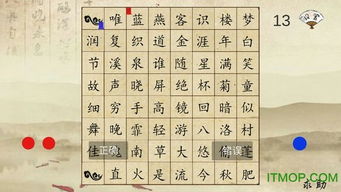 唯 蓝 燕 客 识 楼 梦
13
润 复 织 道 金 涯 年 白
节 溪 泉 谁 随 星 满 笑
故 声 晓 屏 丝 杯 菊 童
细 穷 手 高 镜 回 暗 似
舞 晚 轻 游 八 洛 村
佳 南 草 大 悠 蓬
正确
错误
直 火 是 流 今 秋 肥
ITMOP.com
求助